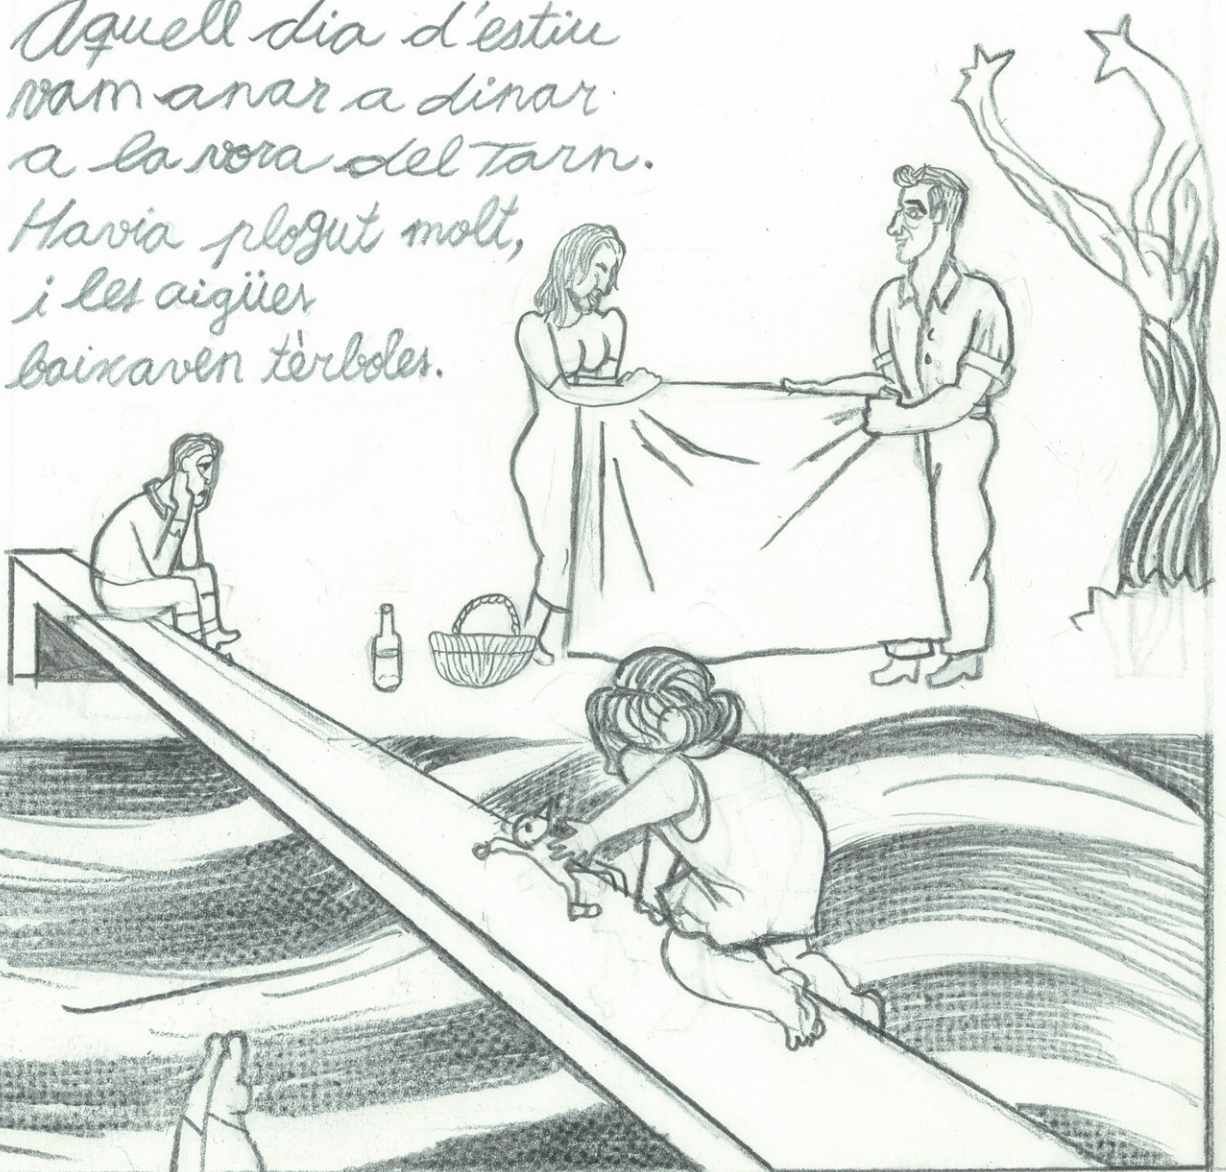 Aquell dia d'estiu
vam anar a dinar
a la vora del Tarn.
Havia plogut molt,
i les aigües
baixaven tèrboles.